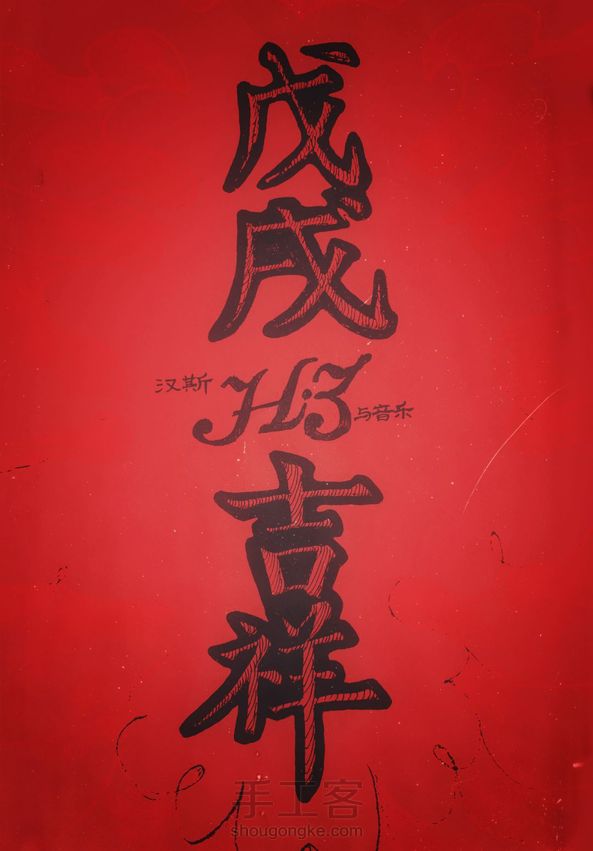 戊
戌
汉斯 H·3 与音乐
吉
祥
手工客
shougongke.com